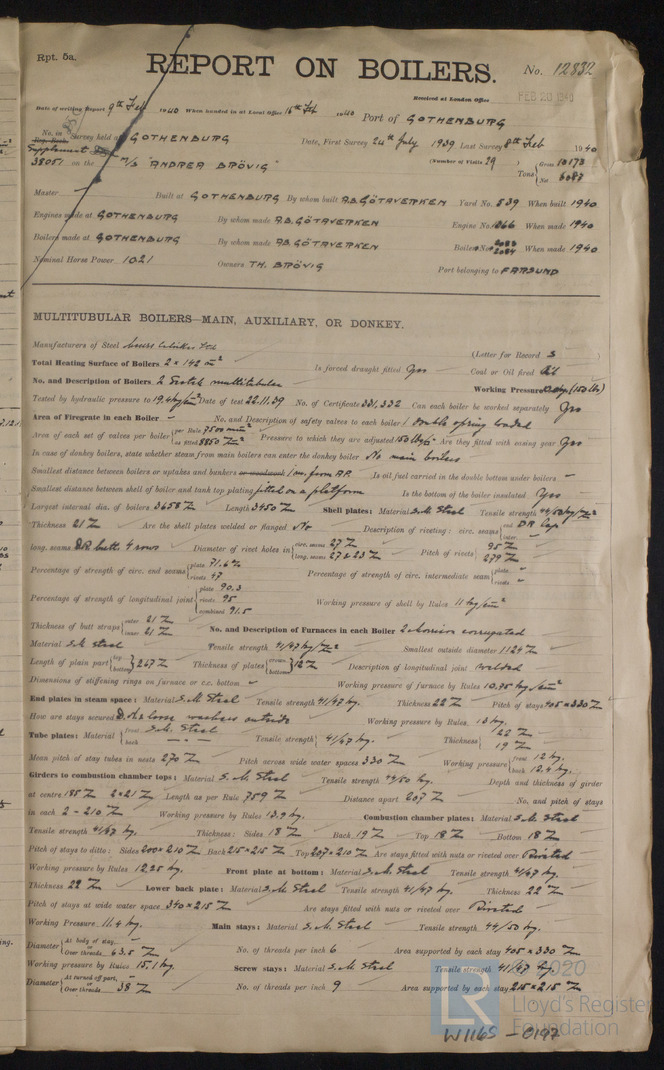 Rpt. 5a.
REPORT ON BOILERS.
No. 12832
Received at London Office FEB 20 1940
Date of writing Report 9th Feb 1940 When handed in at Local Office 16th Feb 1940 Port of GOTHENBURG
No. in Survey held at GOTHENBURG Date, First Survey 24th July 1939 Last Survey 8th Feb 1940
Supplement
38051 on the M/S "ANDREA BRÖVIG" (Number of Visits 29) Tons Gross 10173 Net 6087
Master – Built at GOTHENBURG By whom built A.B. GÖTAVERKEN Yard No. 539 When built 1940
Engines made at GOTHENBURG By whom made A.B. GÖTAVERKEN Engine No. 1066 When made 1940
Boilers made at GOTHENBURG By whom made A.B. GÖTAVERKEN Boiler No. 2083 2084 When made 1940
Nominal Horse Power 1021 Owners TH. BRÖVIG Port belonging to FARSUND
MULTITUBULAR BOILERS—MAIN, AUXILIARY, OR DONKEY.
Manufacturers of Steel (Letter for Record S)
Total Heating Surface of Boilers 2 × 142 m² Is forced draught fitted Yes Coal or Oil fired Oil
No. and Description of Boilers 2 Scotch multitubular Working Pressure (150 lbs)
Tested by hydraulic pressure to 19.4 kg/cm² Date of test 22.11.39 No. of Certificate 331, 332 Can each boiler be worked separately Yes
Area of Firegrate in each Boiler – No. and Description of safety valves to each boiler 1 double spring loaded
Area of each set of valves per boiler per Rule 7500 mm² as fitted 8850 Pressure to which they are adjusted 150 lbs Are they fitted with easing gear Yes
In case of donkey boilers, state whether steam from main boilers can enter the donkey boiler No main boilers
Smallest distance between boilers or uptakes and bunkers or woodwork 1 m. from A.P. Is oil fuel carried in the double bottom under boilers –
Smallest distance between shell of boiler and tank top plating fitted on a platform Is the bottom of the boiler insulated Yes
Largest internal dia. of boilers 3658 Length 3450 Shell plates: Material S.M. Steel Tensile strength 44/50 kg/
Thickness 21 Are the shell plates welded or flanged No Description of riveting: circ. seams end DR Lap inter. –
long. seams DR butt. 4 rows Diameter of rivet holes in circ. seams 27 long. seams 27 & 23 Pitch of rivets 95 279
Percentage of strength of circ. end seams plate 71.6 rivets 47 Percentage of strength of circ. intermediate seam plate – rivets –
Percentage of strength of longitudinal joint plate 90.3 rivets 95 combined 91.5 Working pressure of shell by Rules 11 kg/cm²
Thickness of butt straps outer 21 inner 21 No. and Description of Furnaces in each Boiler 2 Morison corrugated
Material S.M. Steel Tensile strength 41/47 kg/ Smallest outside diameter 1124
Length of plain part top bottom 247 Thickness of plates crown bottom 12 Description of longitudinal joint welded
Dimensions of stiffening rings on furnace or c.c. bottom – Working pressure of furnace by Rules 10.75 kg/cm²
End plates in steam space: Material S.M. Steel Tensile strength 41/47 kg. Thickness 22 Pitch of stays 405 × 330
How are stays secured D. Nuts loose washers outside Working pressure by Rules. 13 kg.
Tube plates: Material front S.M. Steel back – " – Tensile strength 41/47 kg. Thickness 22 19
Mean pitch of stay tubes in nests 270 Pitch across wide water spaces 330 Working pressure front 12 kg. back 12.4 kg.
Girders to combustion chamber tops: Material S.M. Steel Tensile strength 44/50 kg. Depth and thickness of girder
at centre 185 2×21 Length as per Rule 759 Distance apart 207 No. and pitch of stays
in each 2 – 210 Working pressure by Rules 13.9 kg. Combustion chamber plates: Material S.M. Steel
Tensile strength 41/47 kg. Thickness: Sides 18 Back 19 Top 18 Bottom 18
Pitch of stays to ditto: Sides 200 × 210 Back 215 × 215 Top 207 × 210 Are stays fitted with nuts or riveted over Riveted
Working pressure by Rules 12.25 kg. Front plate at bottom: Material S.M. Steel Tensile strength 41/47 kg.
Thickness 22 Lower back plate: Material S.M. Steel Tensile strength 41/47 kg. Thickness 22
Pitch of stays at wide water space 340 × 215 Are stays fitted with nuts or riveted over Riveted
Working Pressure 11.4 kg. Main stays: Material S.M. Steel Tensile strength 44/50 kg.
Diameter At body of stay, or Over threads 63.5 No. of threads per inch 6 Area supported by each stay 405 × 330
Working pressure by Rules 15.1 kg. Screw stays: Material S.M. Steel Tensile strength 41/47 kg.
Diameter At turned off part, or Over threads 38 No. of threads per inch 9 Area supported by each stay 215 × 215
© 2020
LR
Lloyd's Register
Foundation
W1165 – 0197